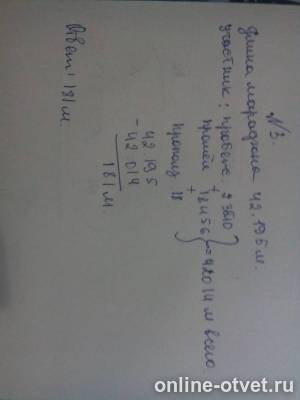 №3.
Длина марафона 42.195 м.
участник: пробежал 23540
прошёл + 18456 } = 42014 м всего
прополз + 18
42195
- 42014
181 м.
Ответ: 181 м
online-otvet.ru